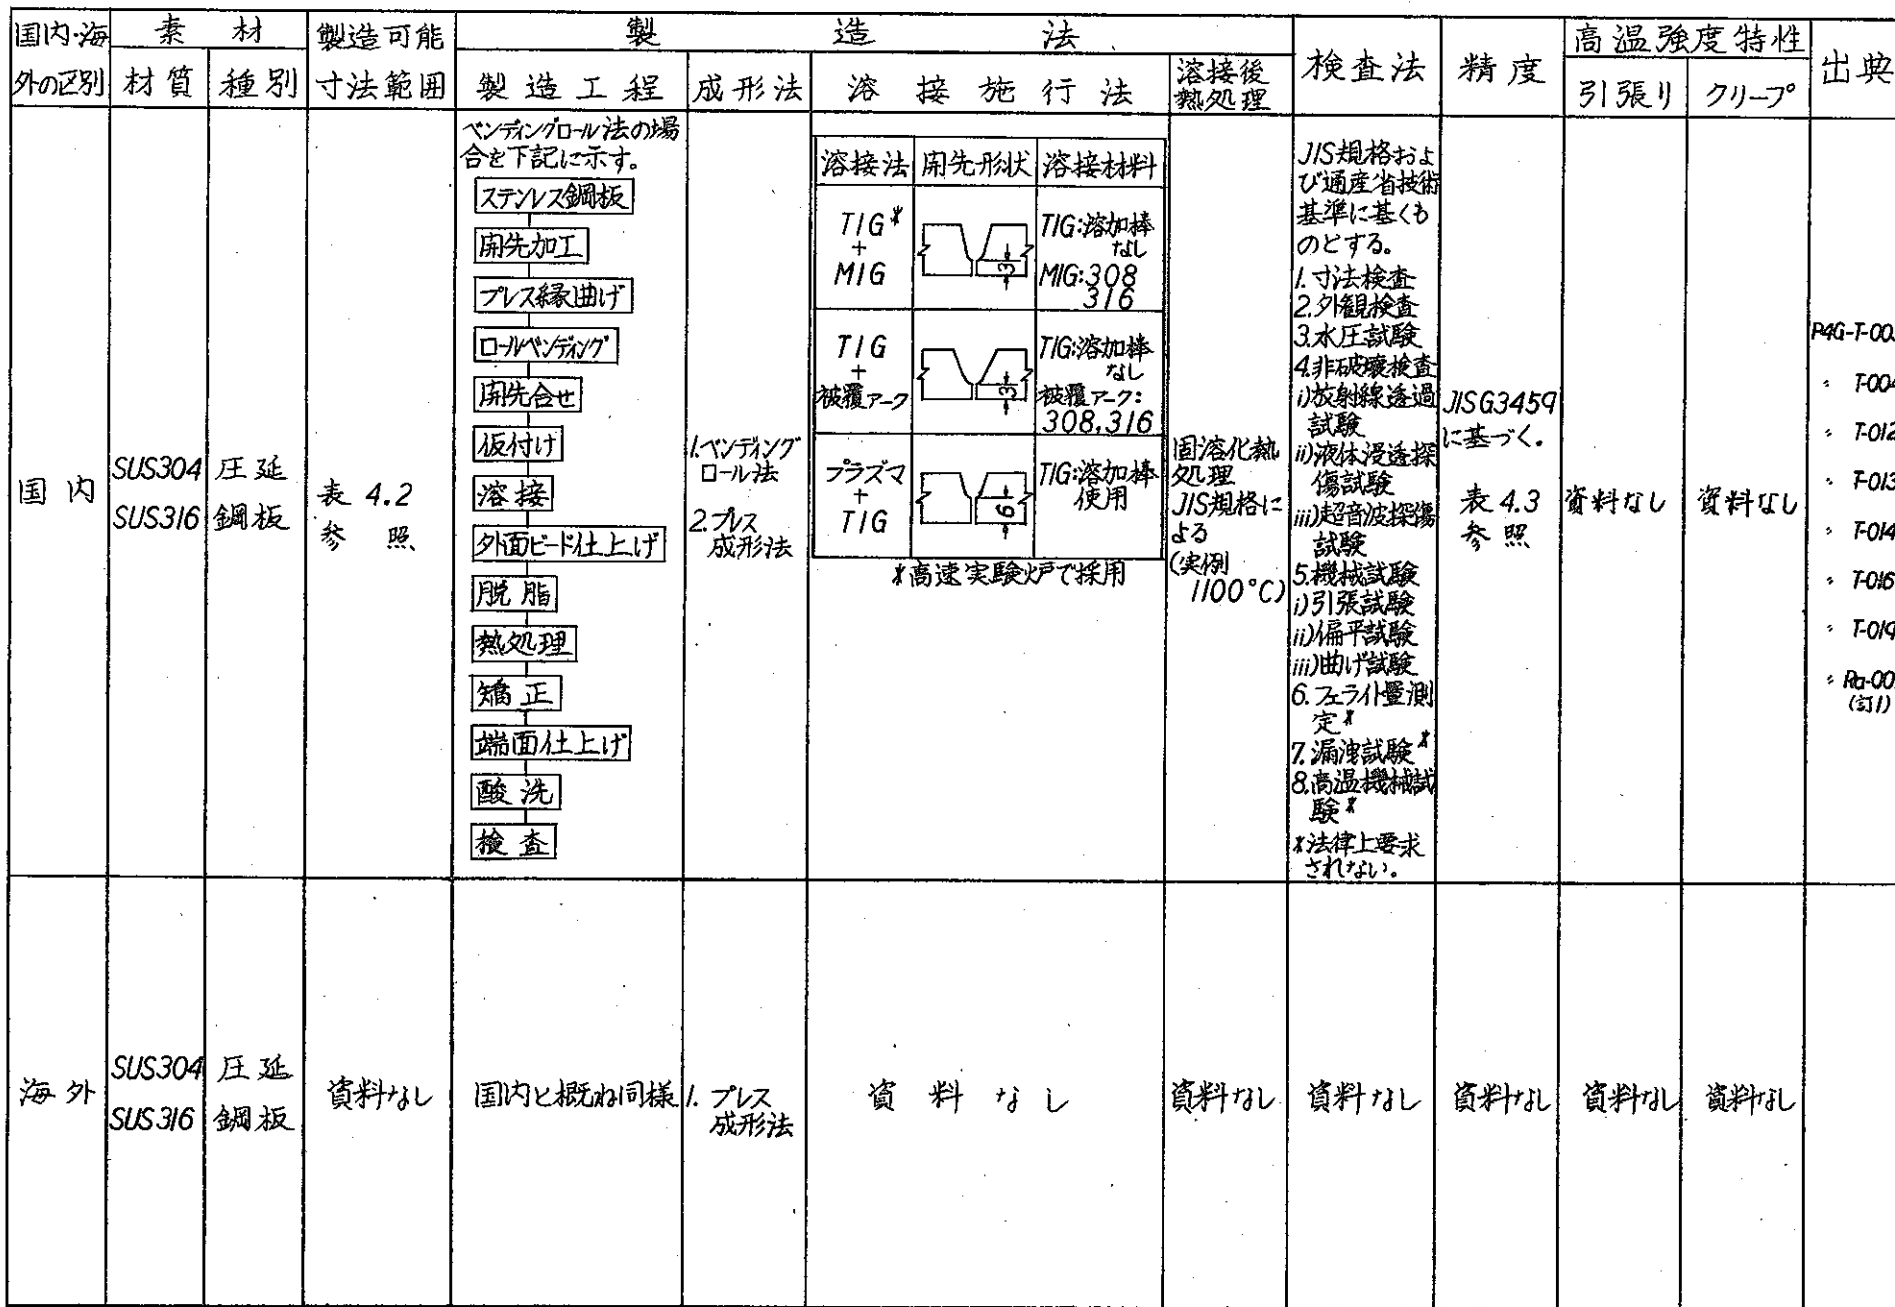 国内・海
外の区別
素 材
材質
種別
製造可能
寸法範囲
製 造 法
製造工程
成形法
溶接施行法
溶接後
熱処理
検査法
精度
高温強度特性
引張り
クリープ
出典
国内
SUS304
SUS316
圧延
鋼板
表 4.2
参 照
ベンディングロール法の場
合を下記に示す。
ステンレス鋼板
開先加工
プレス縁曲げ
ロールベンディング
開先合せ
仮付け
溶接
外面ビード仕上げ
脱脂
熱処理
矯正
端面仕上げ
酸洗
検査
1.ベンディング
ロール法
2.プレス
成形法
溶接法
開先形状
溶接材料
TIG*
+
MIG
3
TIG:溶加棒
なし
MIG:308
316
TIG
+
被覆アーク
3
TIG:溶加棒
なし
被覆アーク:
308,316
プラズマ
+
TIG
6
TIG:溶加棒
使用
*高速実験炉で採用
固溶化熱
処理
JIS規格に
よる
(実例
1100°C)
JIS規格およ
び通産省技術
基準に基くも
のとする。
1.寸法検査
2.外観検査
3.水圧試験
4.非破壊検査
i)放射線透過
試験
ii)液体浸透探
傷試験
iii)超音波探傷
試験
5.機械試験
i)引張試験
ii)偏平試験
iii)曲げ試験
6.フェライト量測
定*
7.漏洩試験*
8.高温機械試
験*
*法律上要求
されない。
JISG3459
に基づく。
表 4.3
参 照
資料なし
資料なし
P4G-T-00
〃 T-004
〃 T-012
〃 T-013
〃 T-014
〃 T-016
〃 T-019
〃 Ra-00
(訂1)
海外
SUS304
SUS316
圧延
鋼板
資料なし
国内と概ね同様
1. プレス
成形法
資料なし
資料なし
資料なし
資料なし
資料なし
資料なし